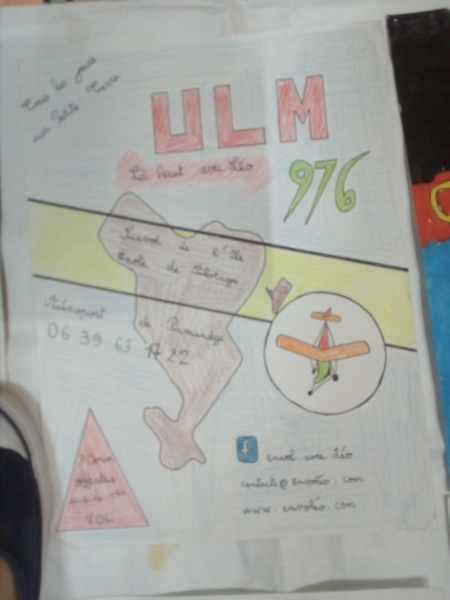 Tous les jours
sur Petite Terre
ULM
Là haut avec Léo
976
Survol de l'île
école de Pilotage
Aéroport
de Pamandzi
06 39 63 17 22
V.O.L
f envol avec Léo
contact@envoléo.com
www.envoléo.com